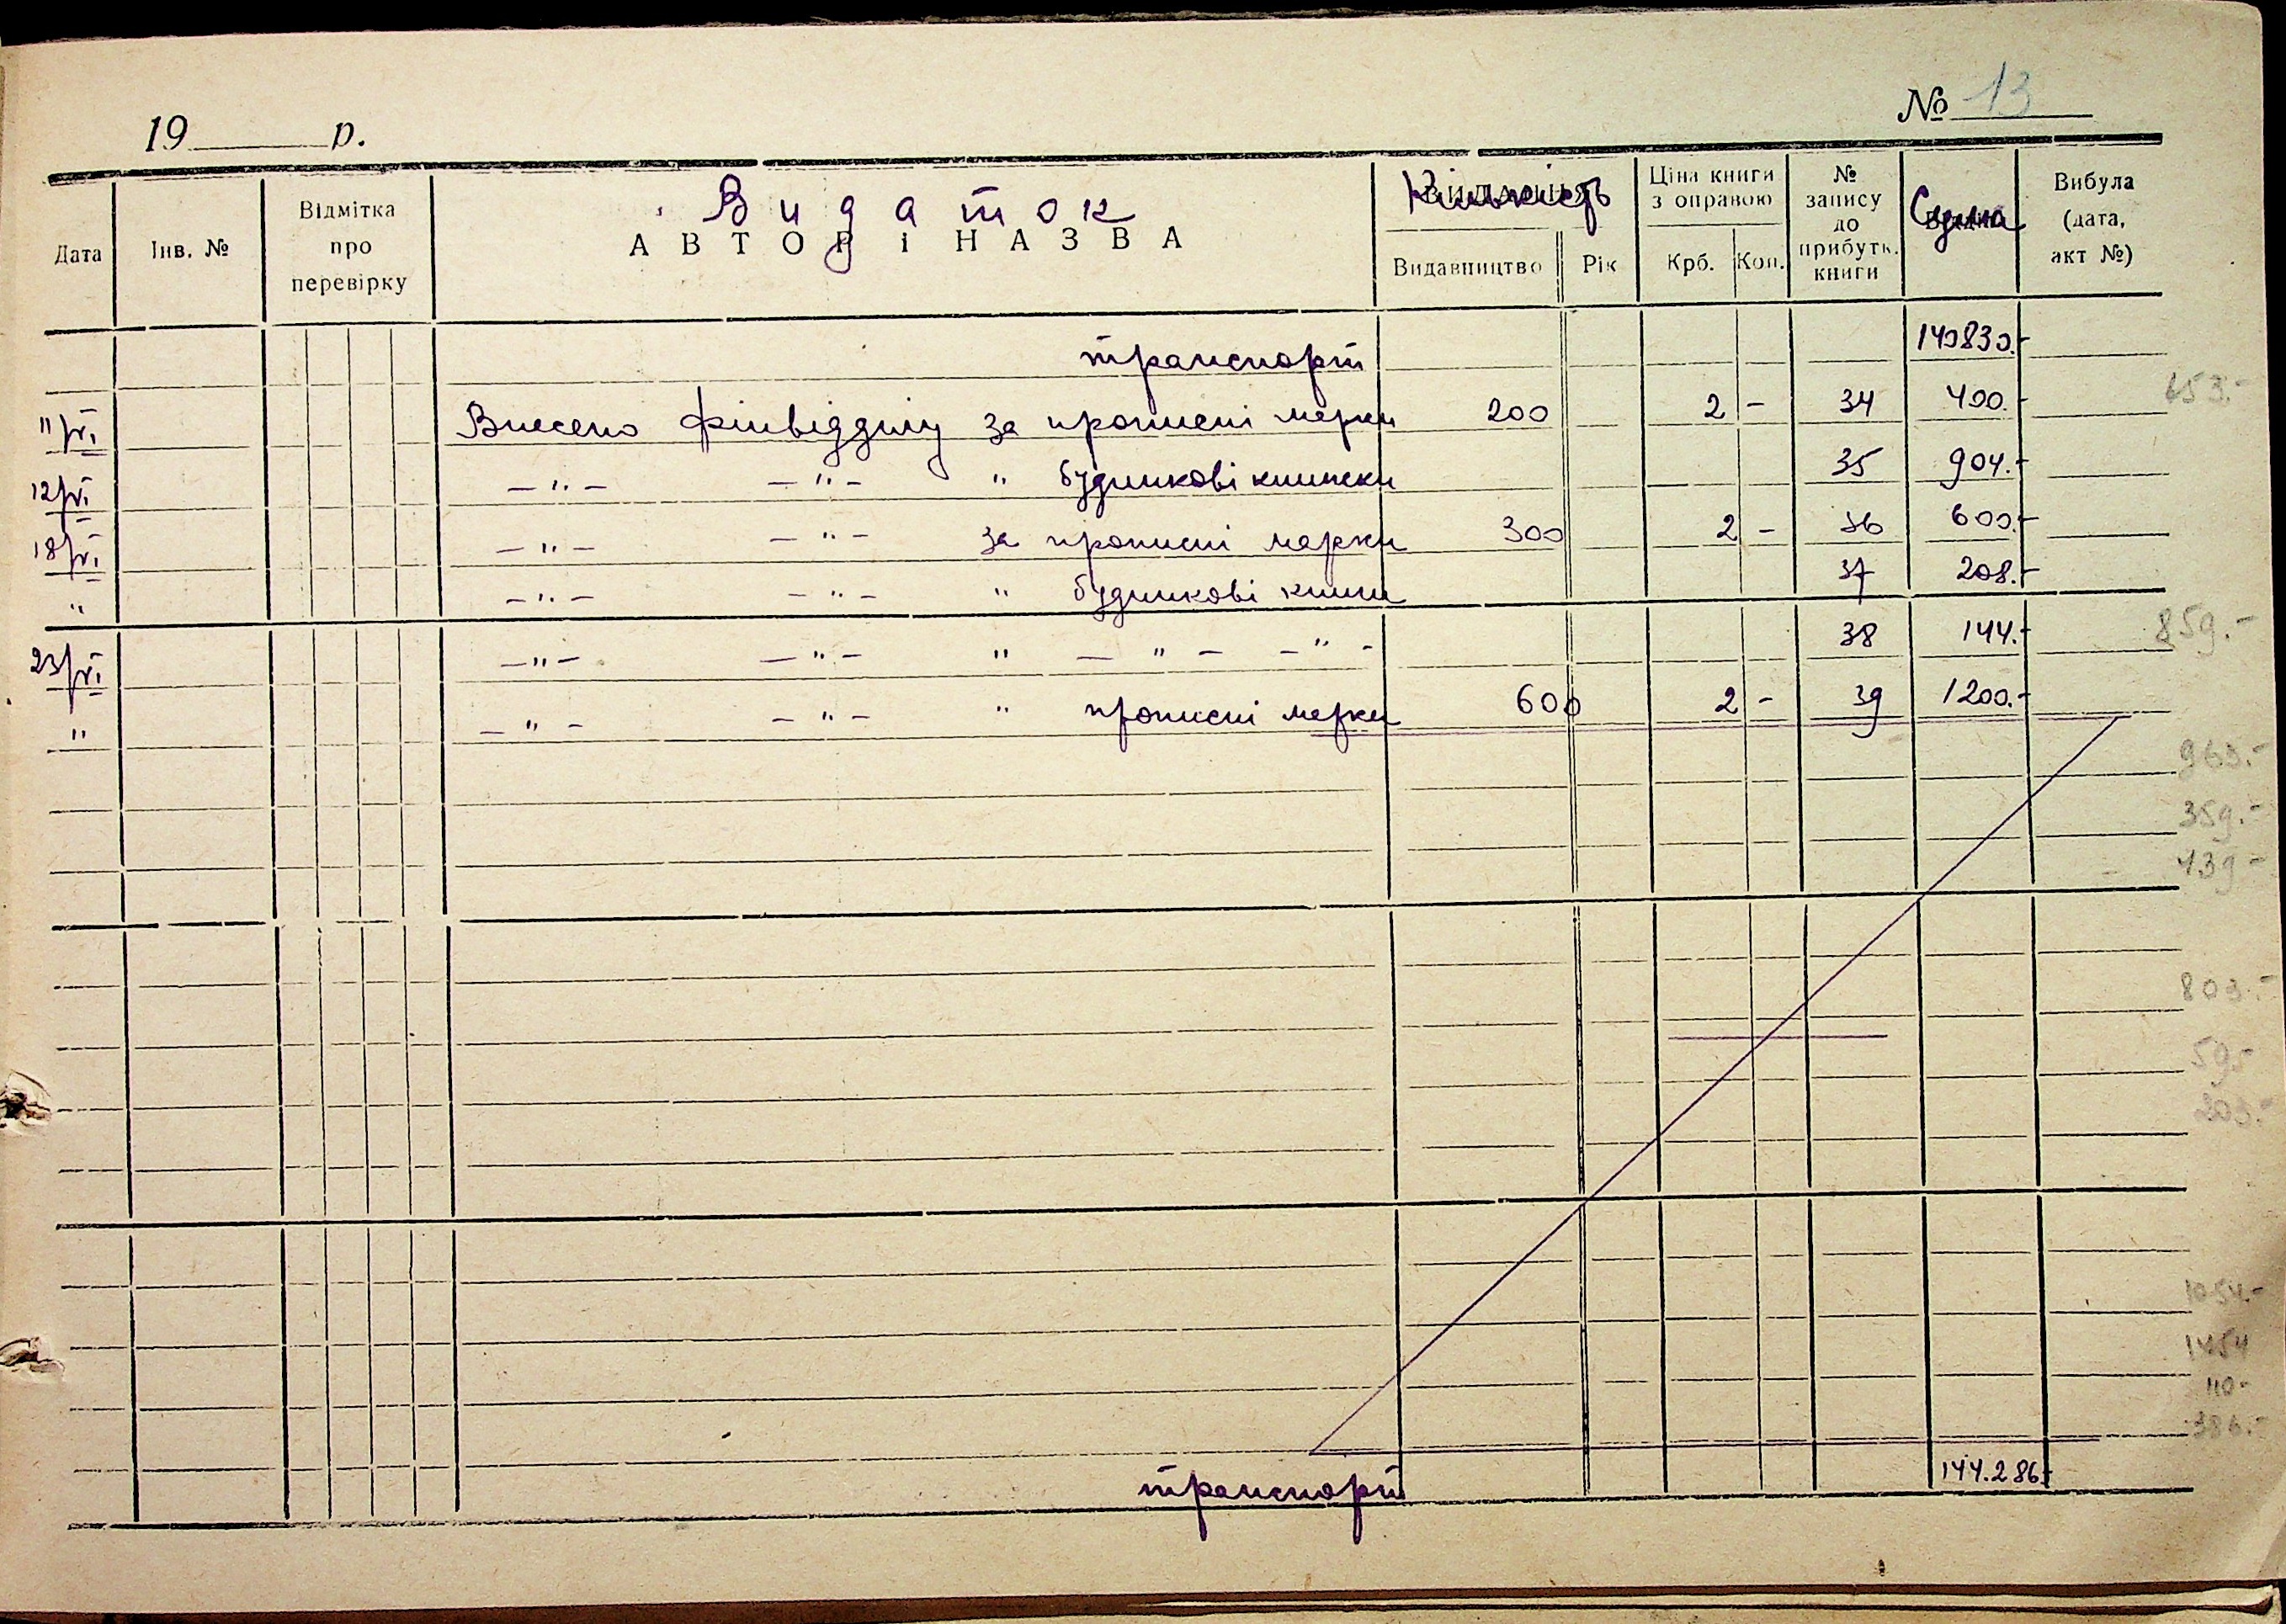 № 13
19 р.
Дата Інв. № Відмітка про перевірку Видаток АВТОР І НАЗВА Кількість Видавництво Рік Ціна книги з оправою Крб. Коп. № запису до прибутк. книги Сума Вибула (дата, акт №)
транспорт 140830.-
653.-
11/VI Внесено фінвідділу за прописні марки 200 2 - 34 400.-
12/VI -"- -"- " будинкові книжки 35 904.-
18/VI -"- -"- за прописні марки 300 2 - 36 600.-
" -"- -"- " будинкові книги 37 208.-
859.-
23/VI -"- -"- " -"- -"- 38 144.-
" -"- -"- " прописні марки 600 2 - 39 1200.-
963.-
359.-
439-
803.-
59.-
203.-
1054.-
1454
110-
386.-
транспорт 144.286.-